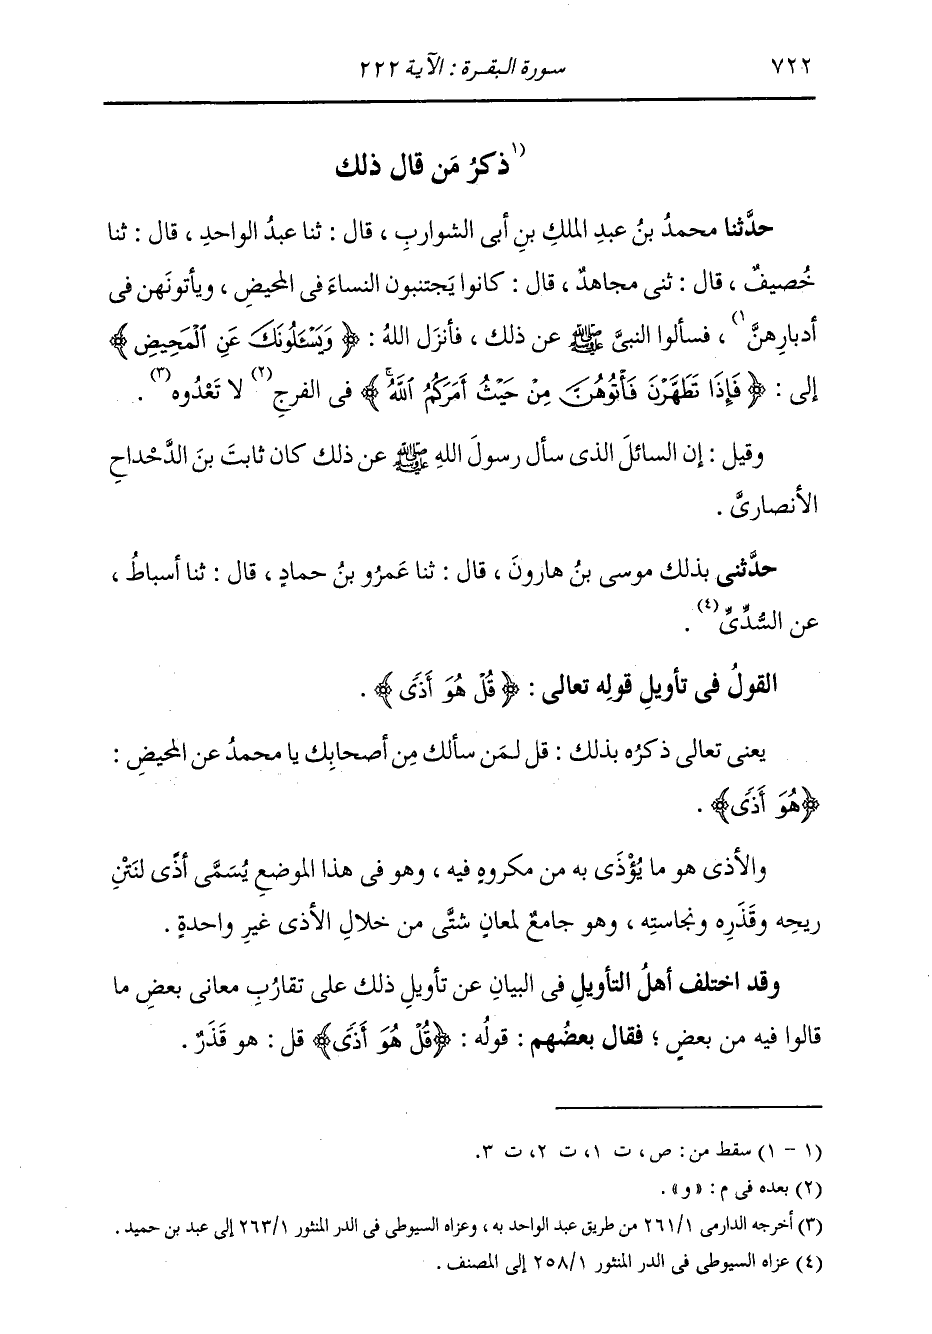 ٧٢٢
سورة البقرة : الآية ٢٢٢
(١ذكرُ مَن قال ذلك
حدَّثنا محمدُ بنُ عبدِ الملكِ بنِ أبى الشواربِ ، قال : ثنا عبدُ الواحدِ ، قال : ثنا
خُصيفٌ ، قال : ثنى مجاهدٌ ، قال : كانوا يَجتنبون النساءَ فى المحيضِ ، ويأتونَهن فى
أدبارِهنَّ١) ، فسألوا النبىَّ ﷺ عن ذلك ، فأنزَل اللهُ : ﴿ وَيَسْـَٔلُونَكَ عَنِ ٱلْمَحِيضِ ﴾
إلى : ﴿ فَإِذَا تَطَهَّرْنَ فَأْتُوهُنَّ مِنْ حَيْثُ أَمَرَكُمُ ٱللَّهُ ﴾ فى الفرجِ(٢) لا تَعْدُوه(٣) .
وقيل : إن السائلَ الذى سأل رسولَ اللهِ ﷺ عن ذلك كان ثابتَ بنَ الدَّحْداحِ
الأنصارىَّ .
حدَّثنى بذلك موسى بنُ هارونَ ، قال : ثنا عَمرُو بنُ حمادٍ ، قال : ثنا أسباطُ ،
عن السُّدِّىِّ(٤) .
القولُ فى تأويلِ قولِه تعالى : ﴿ قُلْ هُوَ أَذًى ﴾ .
يعنى تعالى ذكرُه بذلك : قل لمَن سألك مِن أصحابِك يا محمدُ عن المحيضِ :
﴿هُوَ أَذًى﴾ .
والأذى هو ما يُؤْذَى به من مكروهٍ فيه ، وهو فى هذا الموضعِ يُسَمَّى أذًى لنَتْنِ
ريحِه وقَذَرِه ونجاستِه ، وهو جامعٌ لمعانٍ شتَّى من خلالِ الأذى غيرِ واحدةٍ .
وقد اختلف أهلُ التأويلِ فى البيانِ عن تأويلِ ذلك على تقارُبِ معانى بعضِ ما
قالوا فيه من بعضٍ ؛ فقال بعضُهم : قولُه : ﴿قُلْ هُوَ أَذًى﴾ قل : هو قَذَرٌ .
(١ - ١) سقط من : ص ، ت ١، ت ٢، ت ٣.
(٢) بعده فى م : « و » .
(٣) أخرجه الدارمى ٢٦١/١ من طريق عبد الواحد به ، وعزاه السيوطى فى الدر المنثور ٢٦٣/١ إلى عبد بن حميد .
(٤) عزاه السيوطى فى الدر المنثور ٢٥٨/١ إلى المصنف .